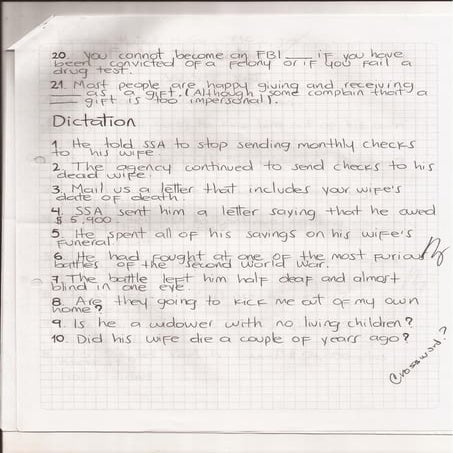 20. You cannot become an FBI ___ if you have
been convicted of a felony or if you fail a
drug test.
21. Most people are happy giving and receiving
___ as a gift. (Although some complain that a
___ gift is too impersonal).
Dictation
1. He told SSA to stop sending monthly checks
to his wife.
2. The agency continued to send checks to his
dead wife.
3. Mail us a letter that includes your wife's
date of death.
4. SSA sent him a letter saying that he owed
$ 5,900.
5. He spent all of his savings on his wife's
funeral.
6. He had fought at one of the most furious
battles of the second world war.
7. The battle left him half deaf and almost
blind in one eye.
8. Are they going to kick me out of my own
home?
9. Is he a widower with no living children?
10. Did his wife die a couple of years ago?
Crossword.?